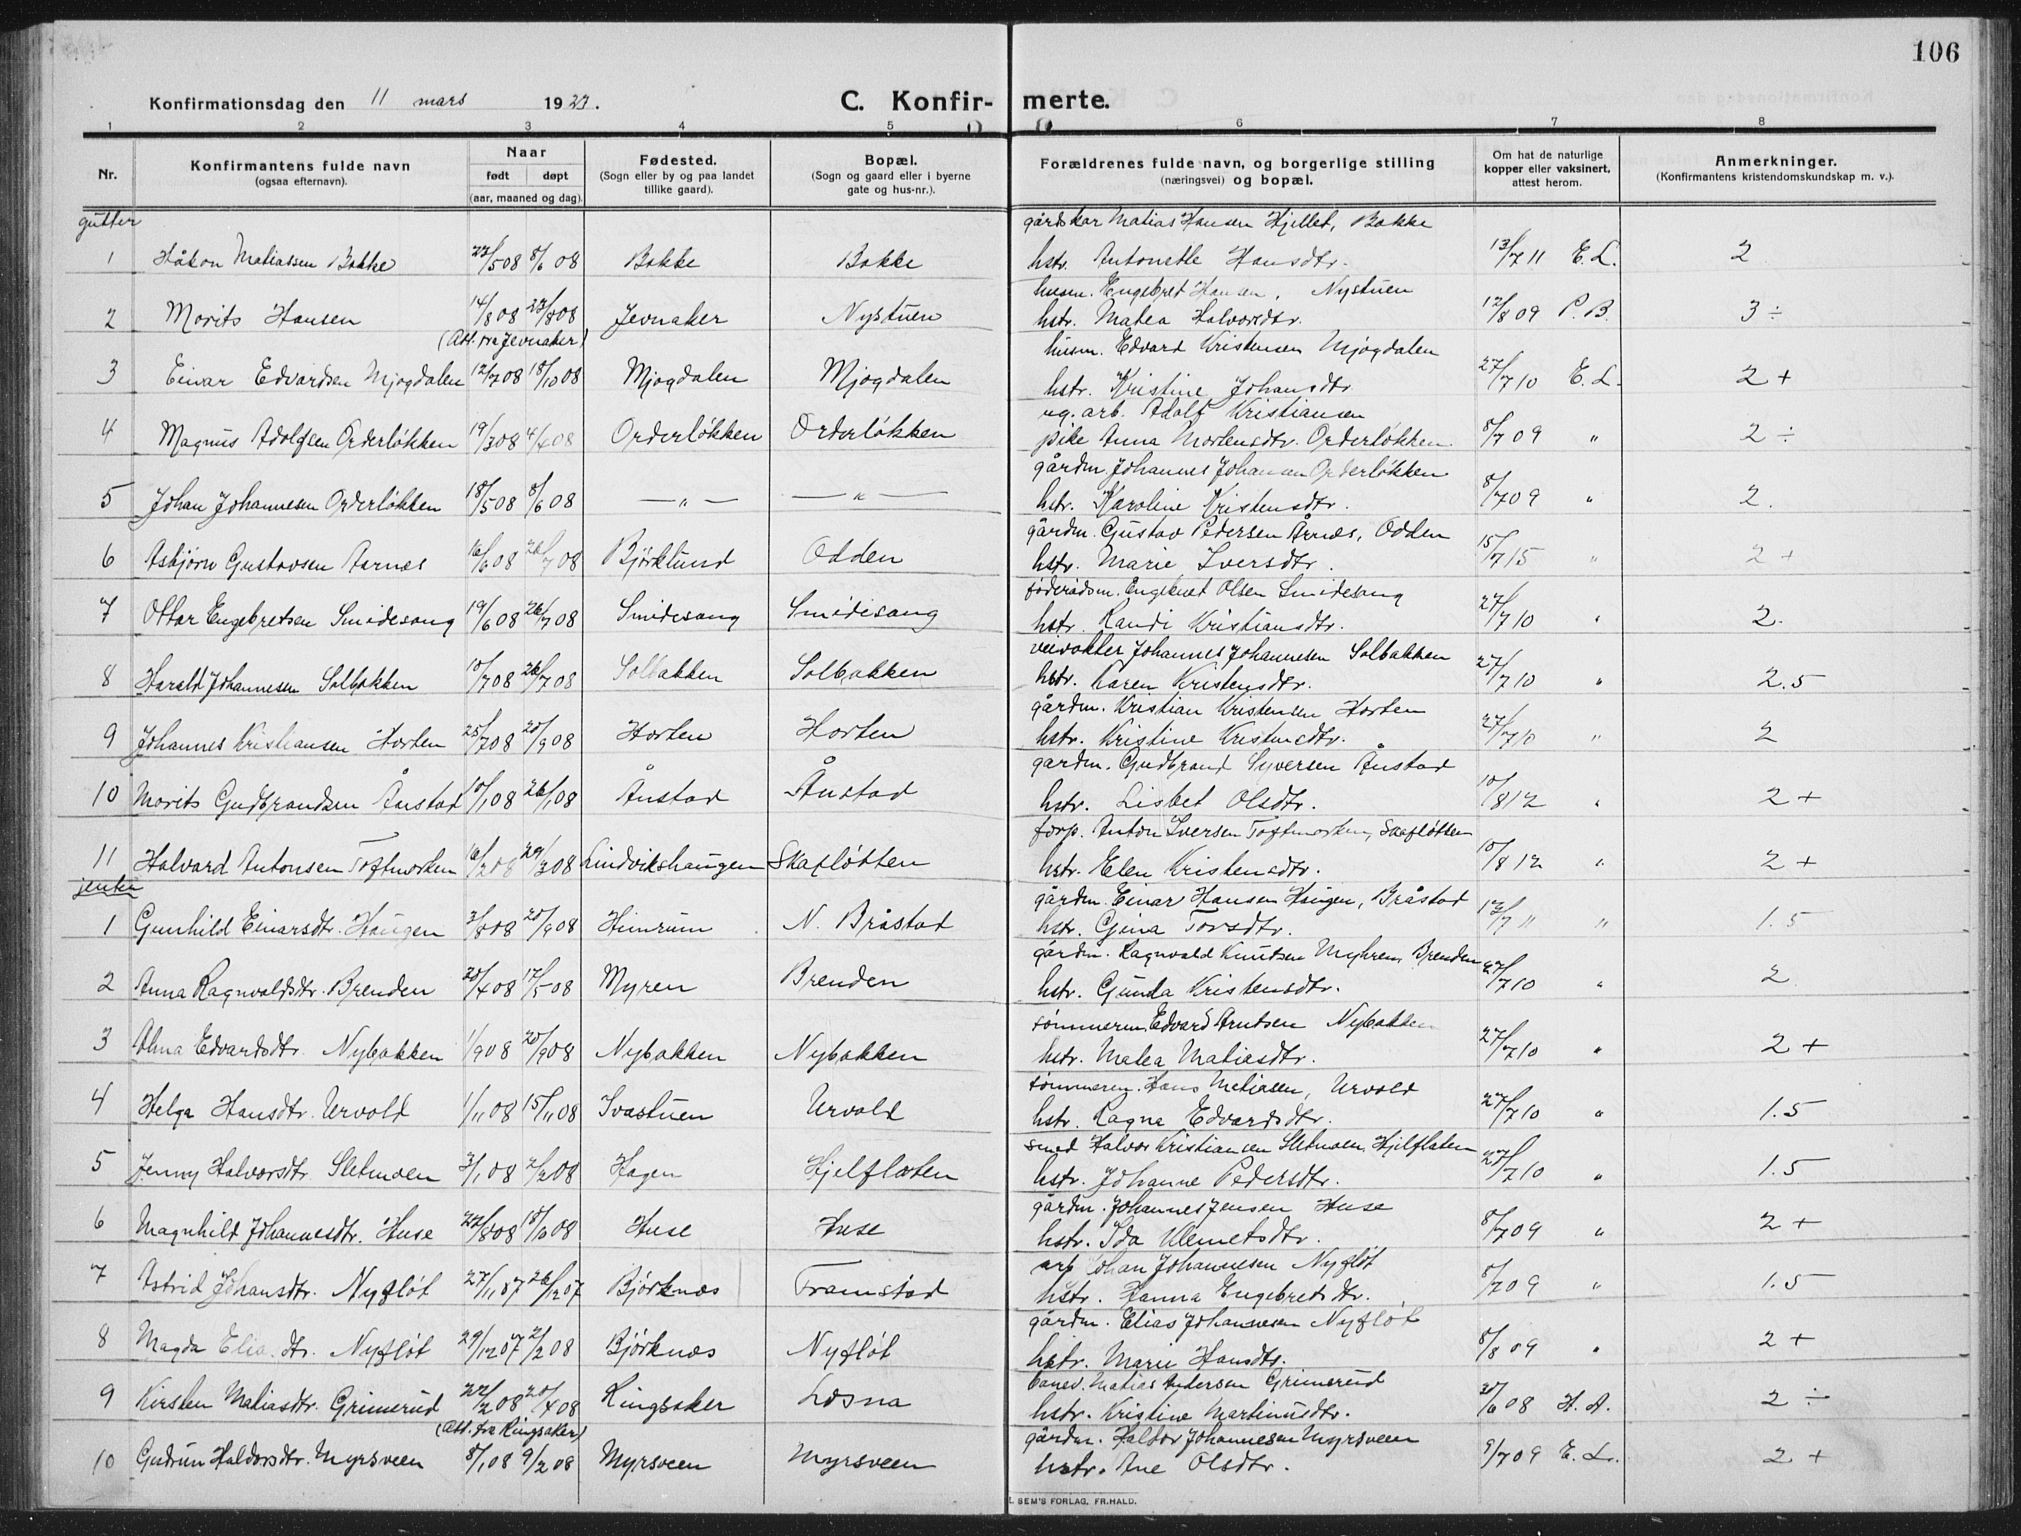 106
Konfirmationsdag den 11 mars 1923. C. Konfirmerte.
1 2 3 4 5 6 7 8
Nr.
Konfirmantens fulde navn
(ogsaa efternavn).
Naar
født døpt
(aar, maaned og dag).
Fødested.
(Sogn eller by og paa landet
tillike gaard).
Bopæl.
(Sogn og gaard eller i byerne
gate og hus-nr.).
Forældrenes fulde navn, og borgerlige stilling
(næringsvei) og bopæl.
Om hat de naturlige
kopper eller vaksinert,
attest herom.
Anmerkninger.
(Konfirmantens kristendomskundskap m. v.).
gutter
gårdskar Matias Hansen Hjellet, Bakke
1 Håkon Matiassen Bakke 22/5 08 8/6 08 Bakke Bakke hstr. Antonette Hansdtr. 13/7 11 E. L. 2
husm. Engebret Hansen, Nystuen
2 Morits Hansen 14/8 08 23/8 08 Jevnaker Nystuen hstr. Matea Halvorsdtr. 12/8 09 P. B. 3 ÷
(Att. fra Jevnaker)
husm. Edvard Kristensen Mjøgdalen
3 Einar Edvardsen Mjøgdalen 12/7 08 18/10 08 Mjøgdalen Mjøgdalen hstr. Kristine Johansdtr. 27/7 10 E. L. 2 +
ug. arb. Adolf Kristiansen
4 Magnus Adolfsen Orderløkken 19/3 08 4/6 08 Orderløkken Orderløkken pike Anna Mortensdtr. Orderløkken 8/7 09 " 2 ÷
gårdm. Johannes Johansen Orderløkken
5 Johan Johannesen Orderløkken 18/5 08 8/6 08 — " — — " — hstr. Karoline Kristensdtr. 8/7 09 " 2.
gårdm. Gustav Pedersen Årnes, Odden
6 Asbjørn Gustavsen Aarnes 16/6 08 26/7 08 Bjørklund Odden hstr. Marie Iversdtr. 15/7 15 " 2 +
føderådsm. Engebret Olsen Smidesang
7 Ottar Engebretsen Smidesang 19/6 08 26/7 08 Smidesang Smidesang hstr. Randi Kristiansdtr. 27/7 10 " 2.
veivokter Johannes Johannesen Solbakken
8 Harald Johannesen Solbakken 10/7 08 26/7 08 Solbakken Solbakken hstr. Karen Kristensdtr. 27/7 10 " 2.5
gårdm. Kristian Kristensen Horten
9 Johannes Kristiansen Horten 25/7 08 20/9 08 Horten Horten hstr. Kristine Kristensdtr. 27/7 10 " 2
gardm. Gudbrand Syversen Ånstad
10 Morits Gudbrandsen Ånstad 10/1 08 26/1 08 Ånstad Ånstad hstr. Lisbet Olsdtr. 10/8 12 " 2 +
forp. Anton Iversen Toftmorken, Skafløtten
11 Halvard Antonsen Toftmorken 16/2 08 29/3 08 Lindvikshaugen Skafløtten hstr. Elen Kristensdtr. 10/8 12 " 2 +
jenter
gårdm. Einar Hansen Haugen, Bråstad
1 Gunhild Einarsdtr. Haugen 3/8 08 20/9 08 Himrum N. Bråstad hstr. Gina Torsdtr. 13/7 11 " 1.5
gårdm. Ragnvald Knutsen Myhren, Brenden
2 Anna Ragnvaldsdtr. Brenden 20/4 08 17/5 08 Myren Brenden hstr. Gunda Kristensdtr. 27/7 10 " 2
tømmerm. Edvard Arntsen Nybakken
3 Alma Edvardsdtr. Nybakken 1/9 08 20/9 08 Nybakken Nybakken hstr. Matea Matiasdtr. 27/7 10 " 2 +
tømmerm. Hans Matiasen, Urvold
4 Helga Hansdtr. Urvold 1/11 08 15/11 08 Ivastuen Urvold hstr. Ragna Edvardsdtr. 27/7 10 " 1.5
smed Halvor Kristiansen Sletmoen, Hjelflaten
5 Jenny Halvorsdtr. Sletmoen 3/1 08 2/2 08 Hagen Hjelflaten hstr. Johanne Pedersdtr. 27/7 10 " 1.5
gårdm. Johannes Jensen Huse
6 Magnhild Johannesdtr. Huse 22/8 08 18/10 08 Huse Huse hstr. Ida Klemetsdtr. 8/7 09 " 2 +
arb Johan Johannesen Nyfløt
7 Astrid Johansdtr. Nyfløt 27/11 07 26/12 07 Bjørknes Framstad hstr. Hanna Engebretsdtr. 8/7 09 " 1.5
gårdm. Elias Johannesen Nyfløt
8 Magda Elia dtr. Nyfløt 29/12 07 2/2 08 Bjørknes Nyfløt hstr. Marie Hansdtr. 8/8 09 " 2 +
banev. Matias Andersen Grimerud
9 Kirsten Matiasdtr. Grimerud 22/2 08 20/4 08 Ringsaker Losna hstr. Kristine Martinusdtr. 30/6 08 H. A. 2 ÷
(Att. fra Ringsaker)
gårdm. Haldor Johannesen Myrsveen
10 Gudrun Haldorsdtr. Myrsveen 8/1 08 9/2 08 Myrsveen Myrsveen hstr. Ane Olsdtr. 9/7 09 E. L. 2 +
SEM'S FORLAG, FR.HALD.